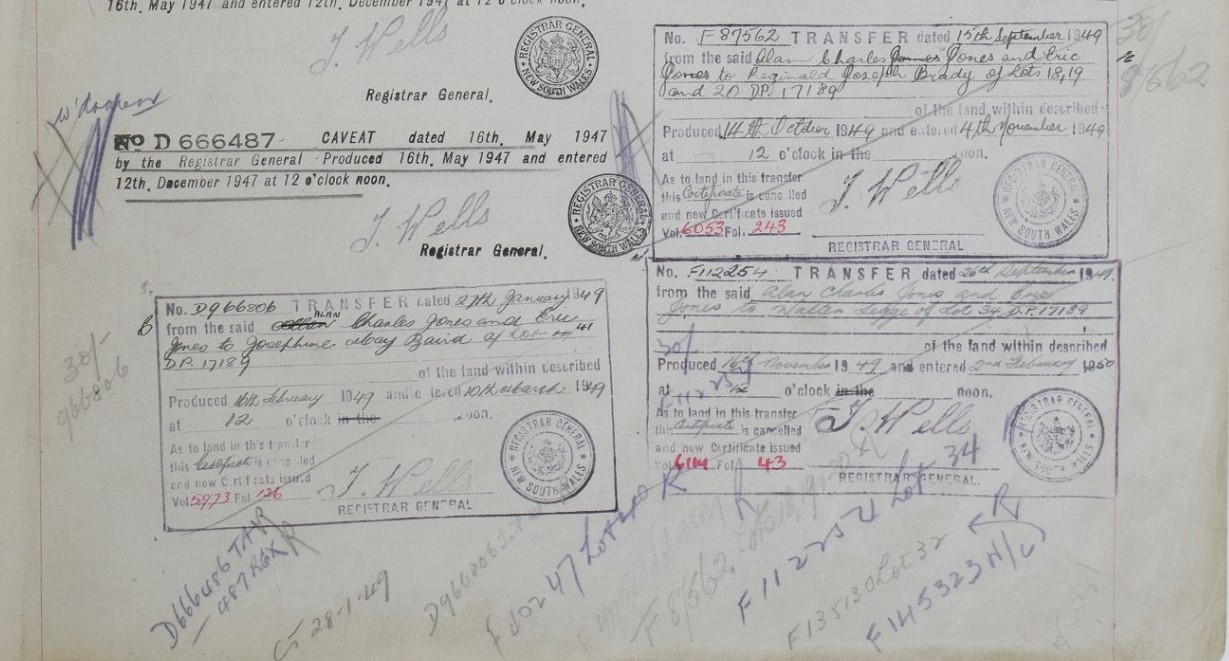 16th. May 1947 and entered 12th. December 1947 at 12 o'clock noon.
J. Wells
Registrar General.
REGISTRAR GENERAL NEW SOUTH WALES
w'drawn
No D 666487 CAVEAT dated 16th. May 1947
by the Registrar General Produced 16th. May 1947 and entered
12th. December 1947 at 12 o'clock noon.
J. Wells
Registrar General.
REGISTRAR GENERAL NEW SOUTH WALES
No. D966806 TRANSFER dated 27th January 1949
from the said ALAN Charles Jones and Eric
Jones to Josephine May Baird of Lot 41
D.P. 17189
of the land within described
Produced 16th February 1949 and entered 10th March 1949
at 12 o'clock in the noon.
As to land in this transfer
this Certificate is cancelled
and new Certificate issued
Vol. 5973 Fol. 126
J. Wells
REGISTRAR GENERAL
REGISTRAR GENERAL NEW SOUTH WALES
30/-
966806
No. F87562 TRANSFER dated 15th September 1949
from the said Alan Charles Jones and Eric
Jones to Reginald Joseph Brady of Lots 18, 19
and 20 D.P. 17189
of the land within described
Produced 14th October 1949 and entered 4th November 1949
at 12 o'clock in the noon.
As to land in this transfer
this Certificate is cancelled
and new Certificate issued
Vol. 6053 Fol. 243
J. Wells
REGISTRAR GENERAL
REGISTRAR GENERAL NEW SOUTH WALES
30/
87562
No. F112254 TRANSFER dated 26th September 1949
from the said Alan Charles Jones and Eric
Jones to Walter Legge of Lot 34 D.P. 17189
of the land within described
30/
Produced 16th November 1949 and entered 2nd February 1950
at 12 o'clock in the noon.
As to land in this transfer
this Certificate is cancelled
and new Certificate issued
Vol. 6114 Fol. 43
J. Wells
REGISTRAR GENERAL.
REGISTRAR GENERAL NEW SOUTH WALES
D666486
487 REX
28-1-49
D966806
Lot 40 R
F87562 Lots 18, 19
F112254 Lot 34
F13513 Lot 32
F145323 N/C
R